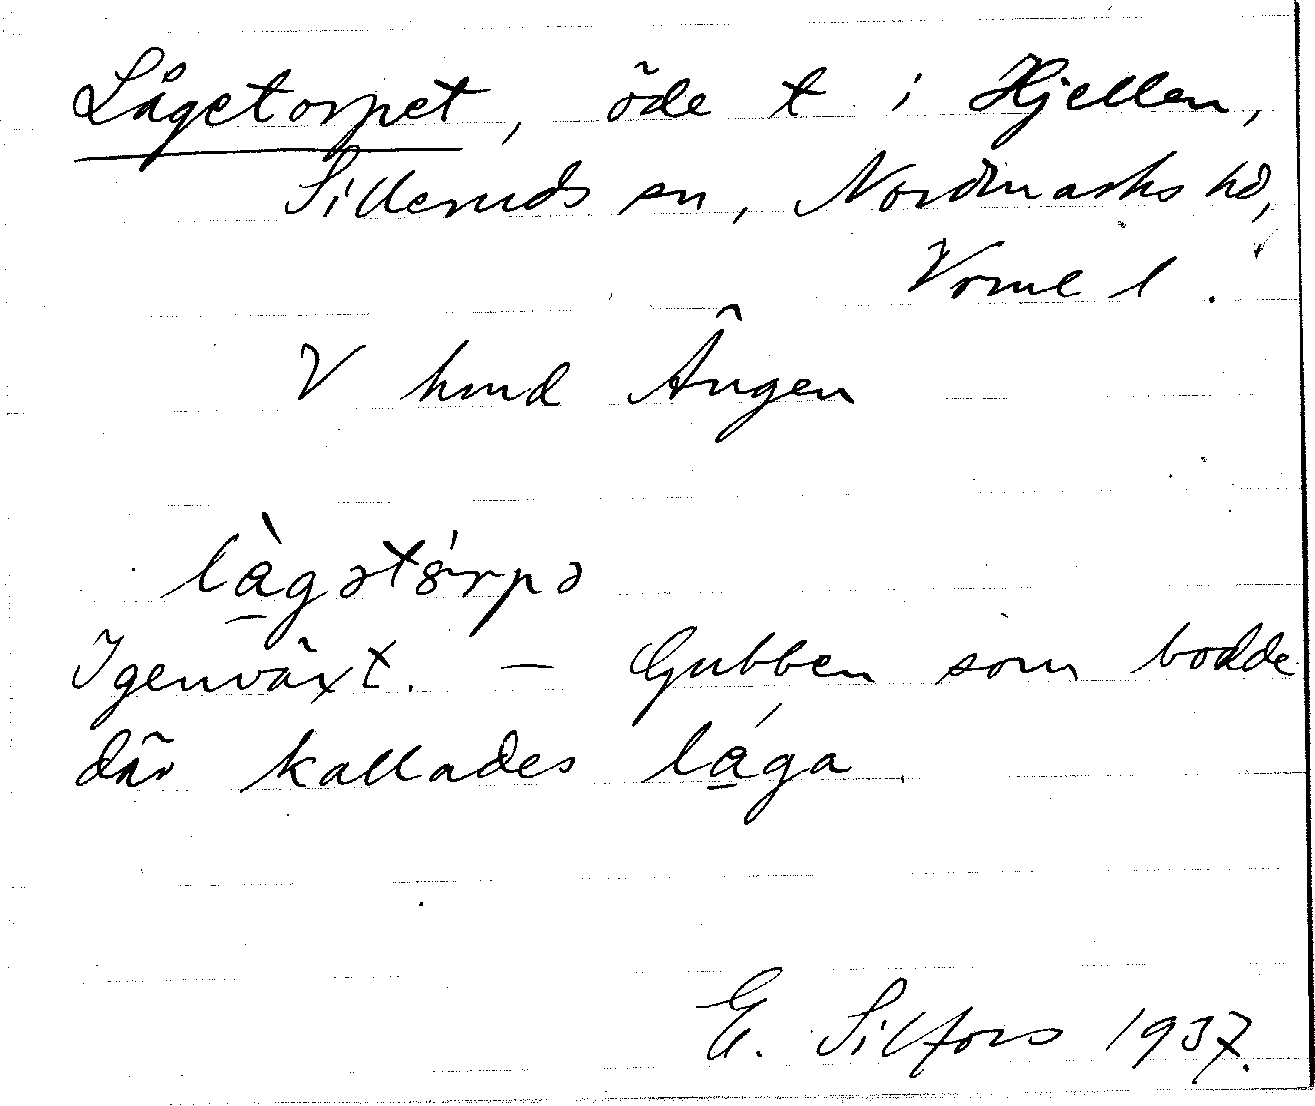 Lågetorpet, öde t i Hjellen,
Silleruds sn, Nordmarks hd,
Värml l.
V hmd Ängen
lågətörpə
Igenväxt. — Gubben som bodde
där kallades låga
E. Silfors 1937.